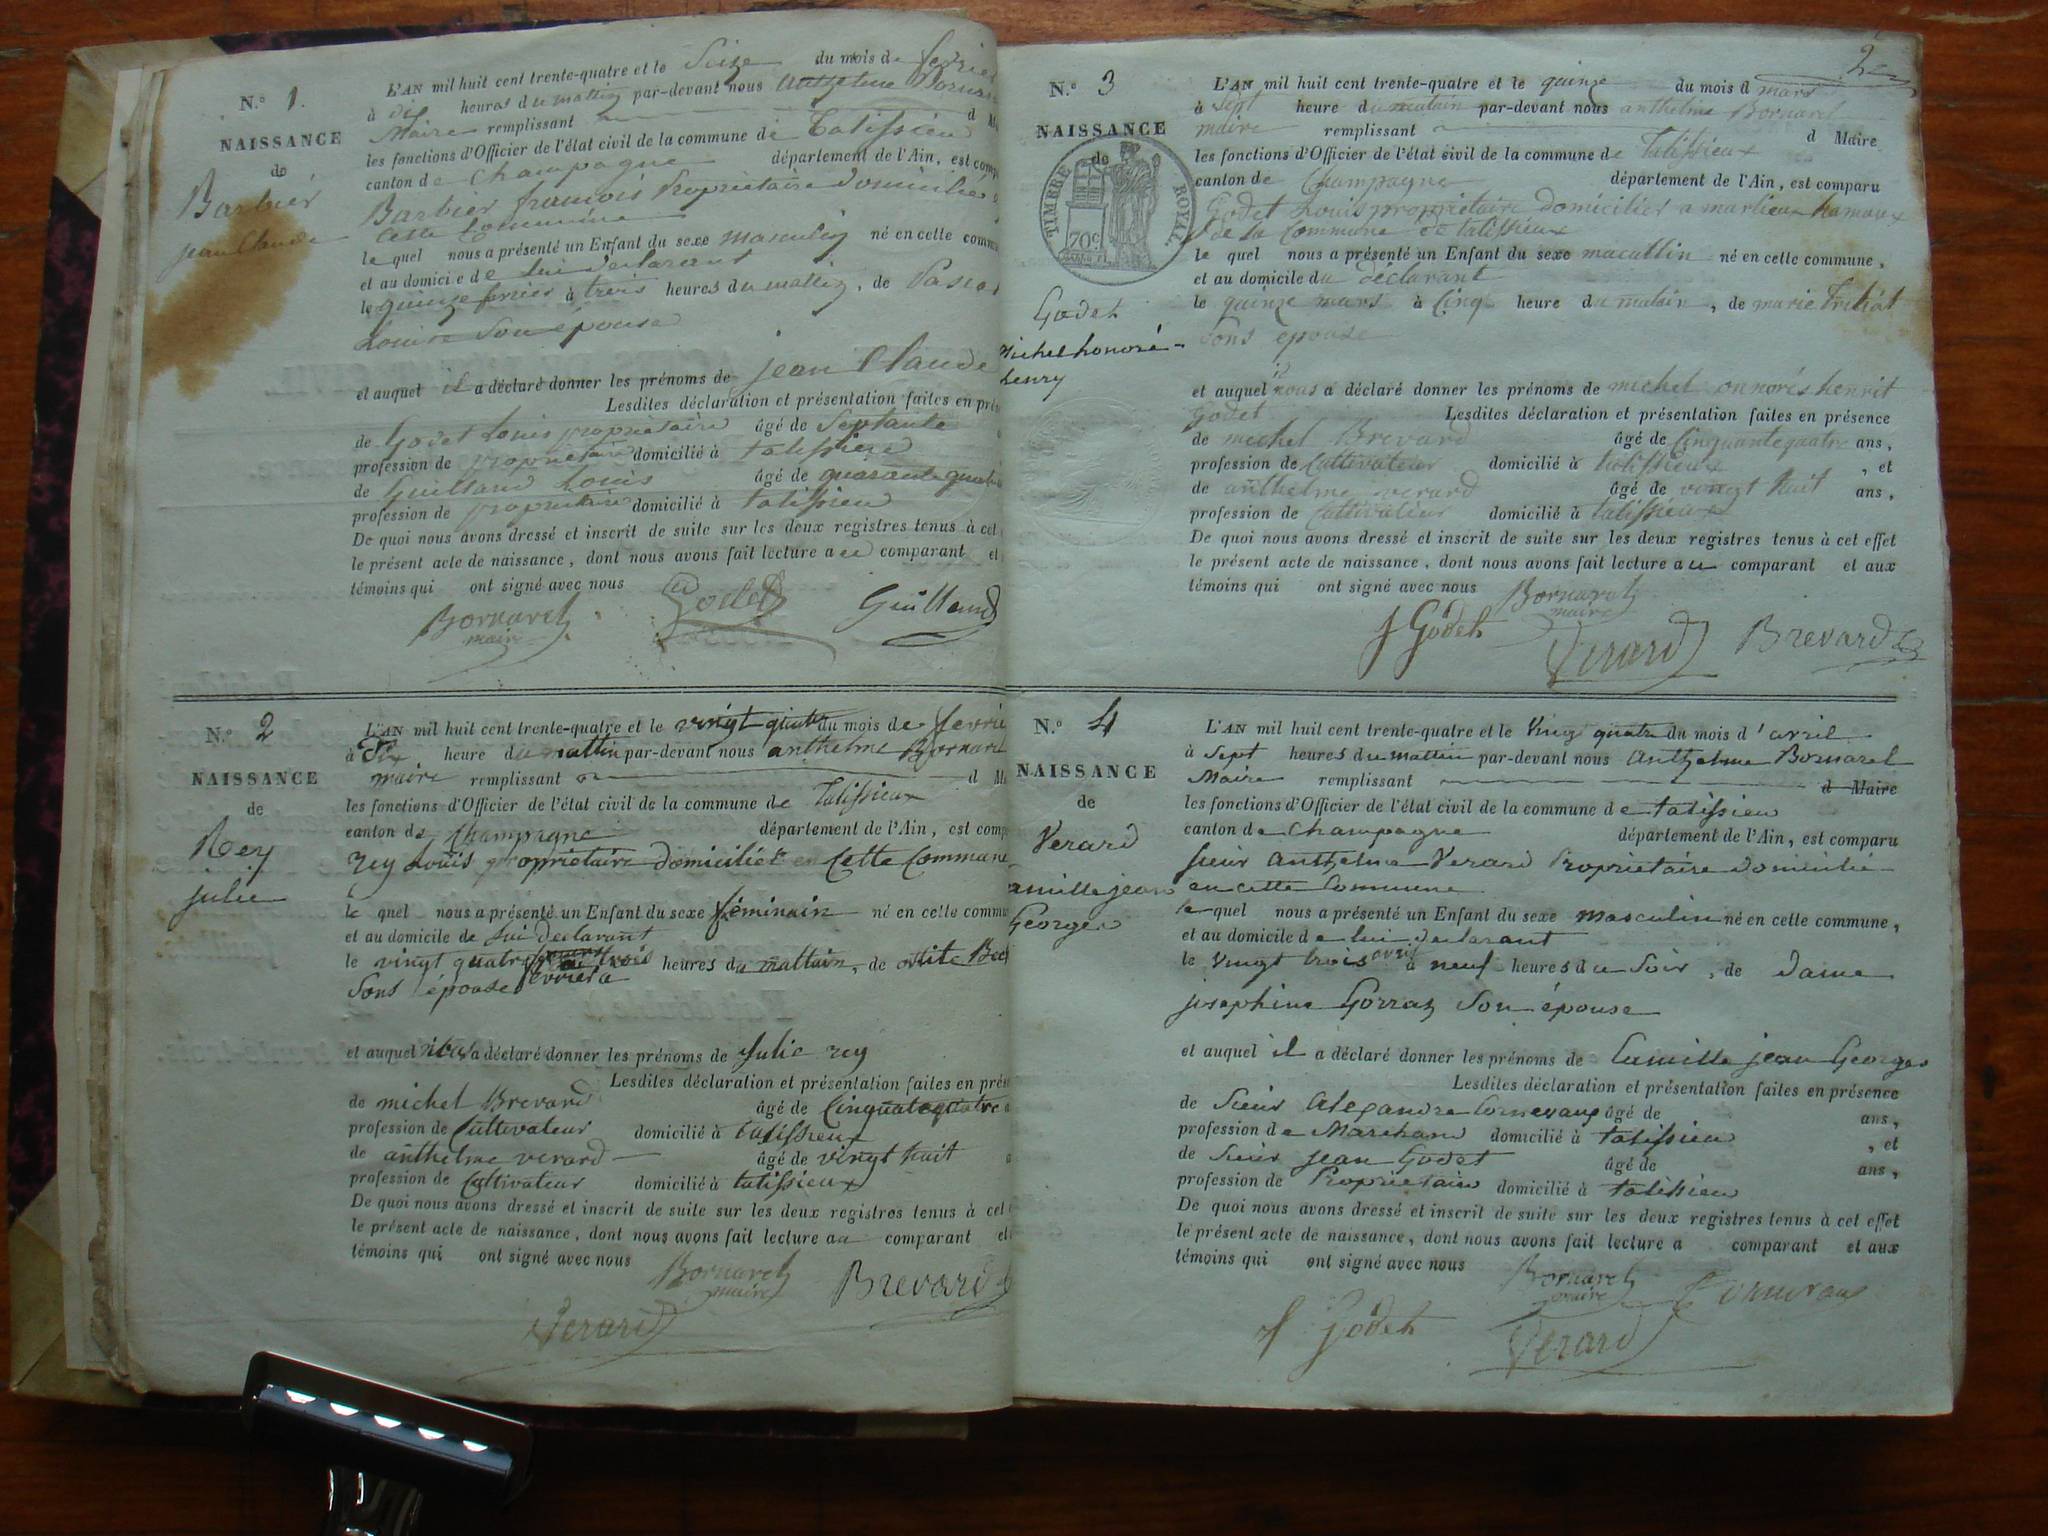 N.° 1.
NAISSANCE
de
Barbier
jean Claude
L'AN mil huit cent trente-quatre et le Seize du mois de fevrier
à dix heures du mattin par-devant nous Anthelme Bornarel
Maire remplissant d M
les fonctions d'Officier de l'état civil de la commune de Talissieu
canton de Champagne département de l'Ain, est comp
Barbier françois Propriétaire domicilié
Cette Commune
le quel nous a présenté un Enfant du sexe masculin né en cette comm
et au domicile de lui declarant
le quinze fevrier à trois heures du mattin, de
Louise Son épouse
et auquel il a déclaré donner les prénoms de jean Claude
Lesdites déclaration et présentation faites en pré
de Godet Louis propriétaire âgé de Septante
profession de propriétaire domicilié à talissieu
de Guilland Louis âgé de quarante quatre
profession de propriétaire domicilié à talissieu
De quoi nous avons dressé et inscrit de suite sur les deux registres tenus à cet
le présent acte de naissance, dont nous avons fait lecture au comparant et
témoins qui ont signé avec nous
Bornarel
maire
Godet
Guilland
N.° 2
NAISSANCE
de
Rey
julie
L'AN mil huit cent trente-quatre et le vingt quatre du mois de fevrie
à Six heure du mattin par-devant nous anthelme Bornarel
maire remplissant d M
les fonctions d'Officier de l'état civil de la commune de talissieux
canton de Champagne département de l'Ain, est comp
rey Louis propriétaire domicilié en Cette Commune
le quel nous a présenté un Enfant du sexe féminain né en cette commu
et au domicile de lui declarant
le vingt quatre à trois heures du mattain, de
Sons épouse fevriera
et auquel a déclaré donner les prénoms de Julie rey
Lesdites déclaration et présentation faites en prés
de michel Brevard âgé de Cinquatequatre a
profession de Cultivateur domicilié à talissieux
de anthelme verard âgé de vingt huit a
profession de Cultivateur domicilié à talissieux
De quoi nous avons dressé et inscrit de suite sur les deux registres tenus à cet
le présent acte de naissance, dont nous avons fait lecture au comparant et
témoins qui ont signé avec nous
Bornarel
maire
Brevard
Verard
2
N.° 3
NAISSANCE
de
TIMBRE ROYAL
70c
Godet
Michel honoré
henry
L'AN mil huit cent trente-quatre et le quinze du mois d mars
à Sept heure du matain par-devant nous anthelme Bornarel
maire remplissant d Maire
les fonctions d'Officier de l'état civil de la commune de talissieux
canton de Champagne département de l'Ain, est comparu
Godet Louis propriétaire domicilier a marlieux hamaux
de la Commune de talissieux
le quel nous a présenté un Enfant du sexe macullin né en cette commune,
et au domicile du déclarant
le quinze mars à Cinq heure du matain, de marie
Sons épouse
et auquel il nous a déclaré donner les prénoms de michel onnorés henrit
Godet Lesdites déclaration et présentation faites en présence
de michel Brevard âgé de Cinquantequatre ans,
profession de Cultivateur domicilié à talissieux, et
de anthelme verard âgé de vingt huit ans,
profession de Cultivateur domicilié à talissieux
De quoi nous avons dressé et inscrit de suite sur les deux registres tenus à cet effet
le présent acte de naissance, dont nous avons fait lecture au comparant et aux
témoins qui ont signé avec nous
Bornarel
maire
Godet
Verard
Brevard
N.° 4
NAISSANCE
de
Verard
amille jean
Georges
L'AN mil huit cent trente-quatre et le Vingt quatre du mois d'avril
à Sept heures du mattin par-devant nous Anthelme Bornarel
Maire remplissant d Maire
les fonctions d'Officier de l'état civil de la commune de talissieu
canton de Champagne département de l'Ain, est comparu
sieur Anthelme Verard Propriétaire domicilié
en cette Commune
le quel nous a présenté un Enfant du sexe masculin né en cette commune,
et au domicile de lui declarant
le Vingt trois avril à neuf heures du Soir, de dame
josephine Gorraz Son épouse
et auquel il a déclaré donner les prénoms de Camille jean Georges
Lesdites déclaration et présentation faites en présence
de Sieur Alexandre Cornevaux âgé de ans,
profession de Marchand domicilié à talissieu, et
de Sieur jean Godet âgé de ans,
profession de Propriétaire domicilié à talissieu
De quoi nous avons dressé et inscrit de suite sur les deux registres tenus à cet effet
le présent acte de naissance, dont nous avons fait lecture a comparant et aux
témoins qui ont signé avec nous
Bornarel
maire
Godet
Verard